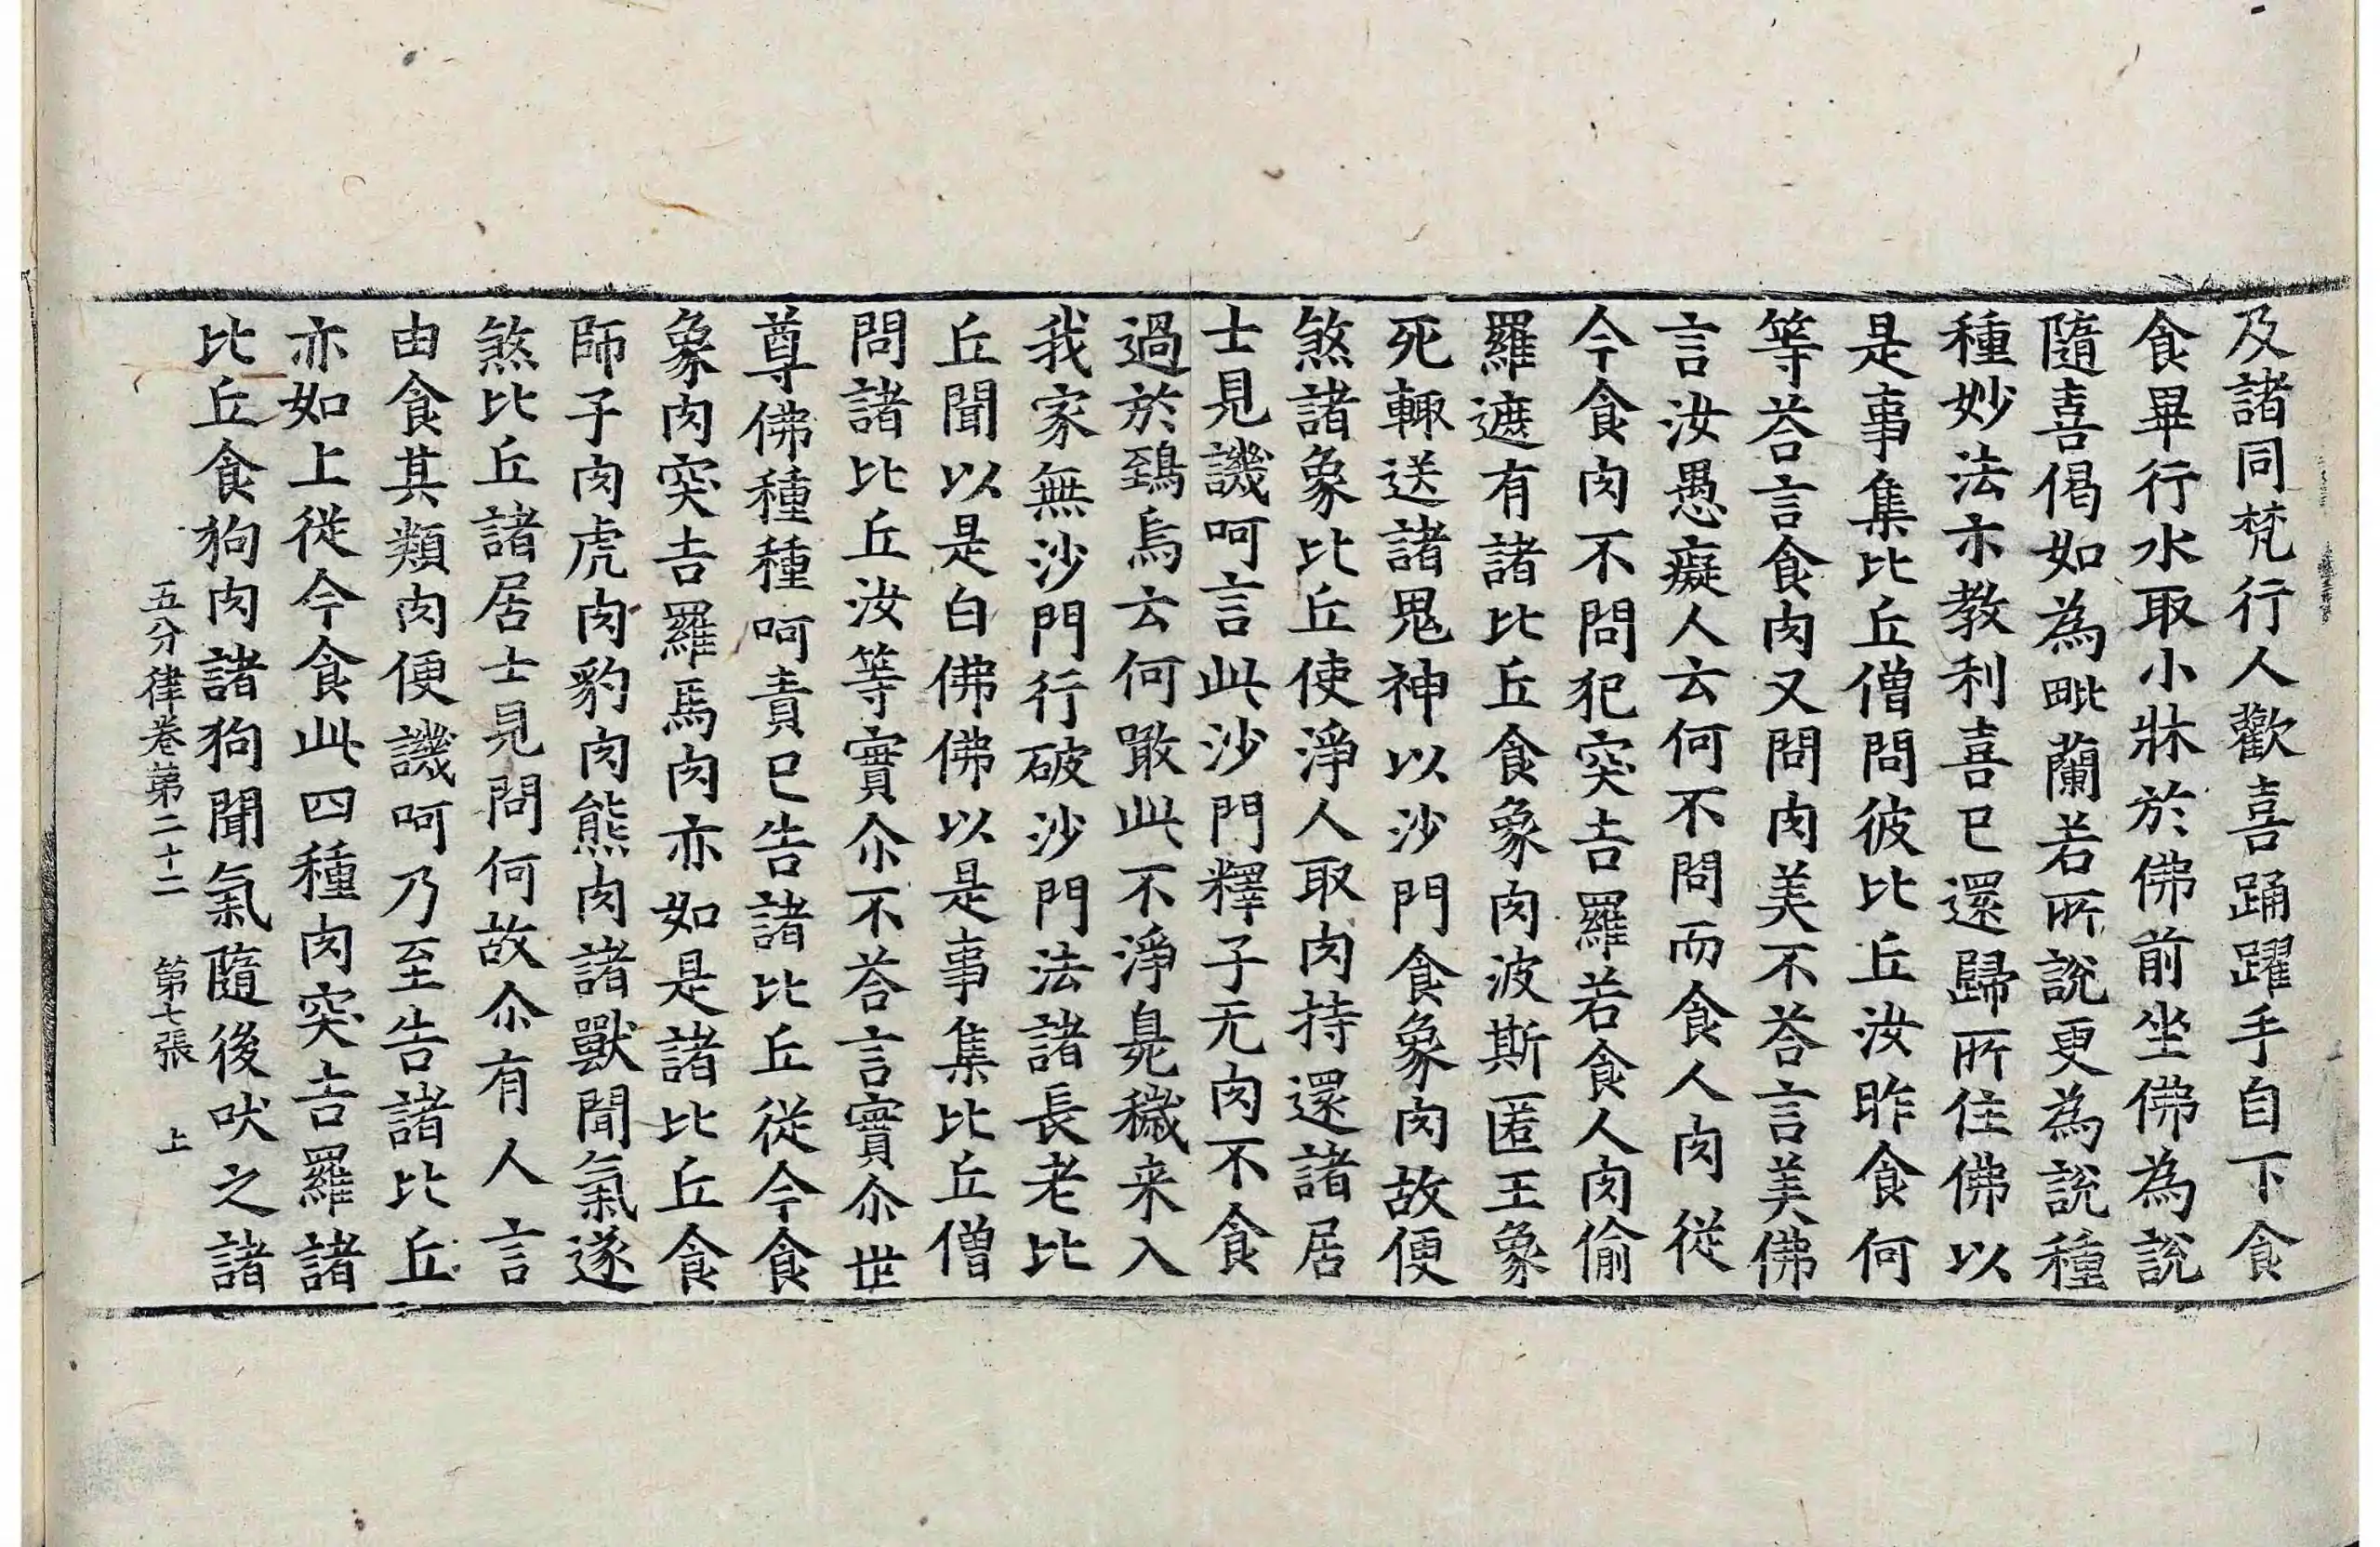 及諸同梵行人歡喜踊躍手自下食
食畢行水取小牀於佛前坐佛為說
隨喜偈如為毗蘭若所說更為說種
種妙法示教利喜已還歸所住佛以
是事集比丘僧問彼比丘汝昨食何
等荅言食肉又問肉美不荅言美佛
言汝愚癡人云何不問而食人肉從
今食肉不問犯突吉羅若食人肉偷
羅遮有諸比丘食象肉波斯匿王象
死輙送諸鬼神以沙門食象肉故便
煞諸象比丘使淨人取肉持還諸居
士見譏呵言此沙門釋子无肉不食
過於鵄烏云何噉此不淨臰穢来入
我家無沙門行破沙門法諸長老比
丘聞以是白佛佛以是事集比丘僧
問諸比丘汝等實尒不荅言實尒世
尊佛種種呵責已告諸比丘從今食
象肉突吉羅馬肉亦如是諸比丘食
師子肉虎肉豹肉熊肉諸獸聞氣遂
煞比丘諸居士見問何故尒有人言
由食其類肉便譏呵乃至告諸比丘
亦如上從今食此四種肉突吉羅諸
比丘食狗肉諸狗聞氣隨後吠之諸
五分律卷第二十二 第七張 上